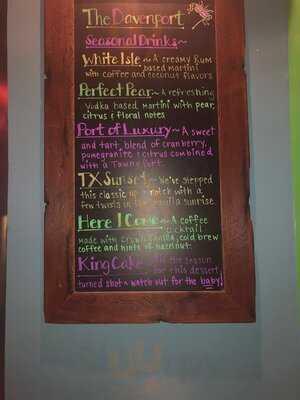 The Davenport
Seasonal Drinks~
White Isle ~ A creamy Rum
based martini
with coffee and coconut flavors
Perfect Pear~ A refreshing
Vodka based martini with pear,
citrus & floral notes
Port of Luxury~ A sweet
and tart, blend of cranberry,
pomegranate & citrus combined
with a Tawny Port.
TX Sunset~ We've stepped
this classic up a notch with a
few twists in the vanilla sunrise
Here I Come~ A coffee
cocktail
made with Crown Vanilla, cold brew
coffee and hints of hazelnut.
King Cake~ the season
for this dessert
turned shot & watch out for the baby!